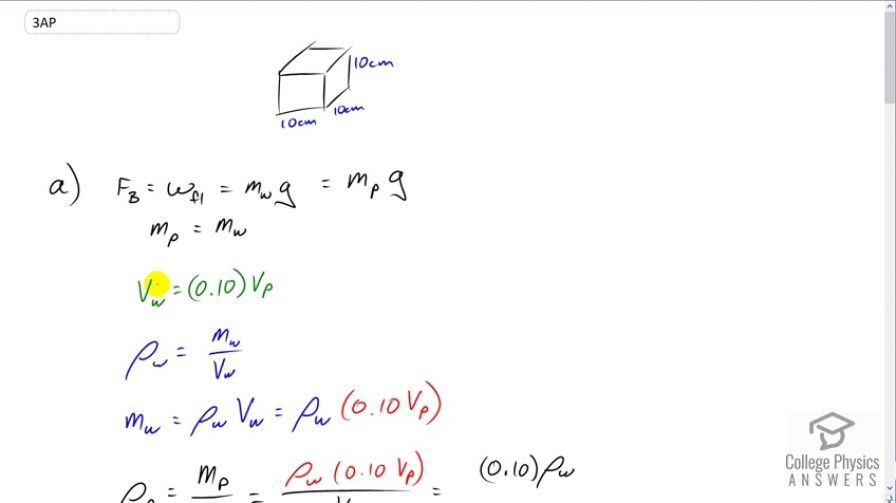 3AP
10cm
10cm
10cm
a) F_B = w_fl = m_w g = m_p g
m_p = m_w
V_w = (0.10) V_p
ρ_w = m_w / V_w
m_w = ρ_w V_w = ρ_w (0.10 V_p)
= m_p = ρ_w (0.10 V_p) = (0.10) ρ_w
College Physics
ANSWERS